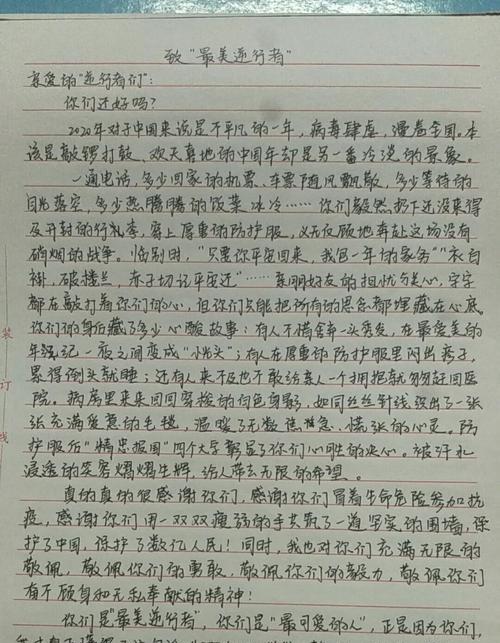 致“最美逆行者”
亲爱的“逆行者们”：
你们还好吗？
2020年对于中国来说是不平凡的一年，病毒肆虐，漫卷全国。本
该是敲锣打鼓、欢天喜地的中国年却是另一番冷淡的景象。
一通电话，多少回家的机票、车票随风飘散，多少等待的
目光落空，多少热腾腾的饭菜冰冷……你们毅然扔下还没来得
及开封的行礼李，穿上厚重的防护服，义无反顾地奔赴这场没有
硝烟的战争。临别时，“只要你平安回来，我包一年的家务”“衣白
褂，破楼兰，赤子切记平安还”……亲朋好友的担忧与关心，字字
都在敲打着你们的心，但你们只能把所有的思念都埋藏在心底。
你们的身后藏了多少心酸故事：有人不惜舍弃一头秀发，在最爱美的
年纪一夜之间变成“小光头”；有人在厚重的防护服里闷出疹子，
累得倒头就睡；还有人来不及也不敢给亲人一个拥抱就匆匆赶回医
院。病房里来来回回穿梭的白色身影，如同丝丝针线织出了一张
张充满爱意的毛毯，温暖了无数焦急、慌张的心灵。防
护服后“精忠报国”四个大字彰显了你们心中的决心。被汗水
浸透的笑容熠熠生辉，给人带去无限的希望。
真的真的很感谢你们，感谢你们冒着生命危险参加抗
疫，感谢你们用一双双瘦弱的手共筑了一道写实的围墙，保
护了中国，保护了数亿人民！同时，我也对你们充满无限的
敬佩，敬佩你们的勇敢，敬佩你们的毅力，敬佩你们
有不顾身和无私奉献的精神！
你们是“最美逆行者”，你们是“最可爱的人”，正是因为你们，
装
订
线